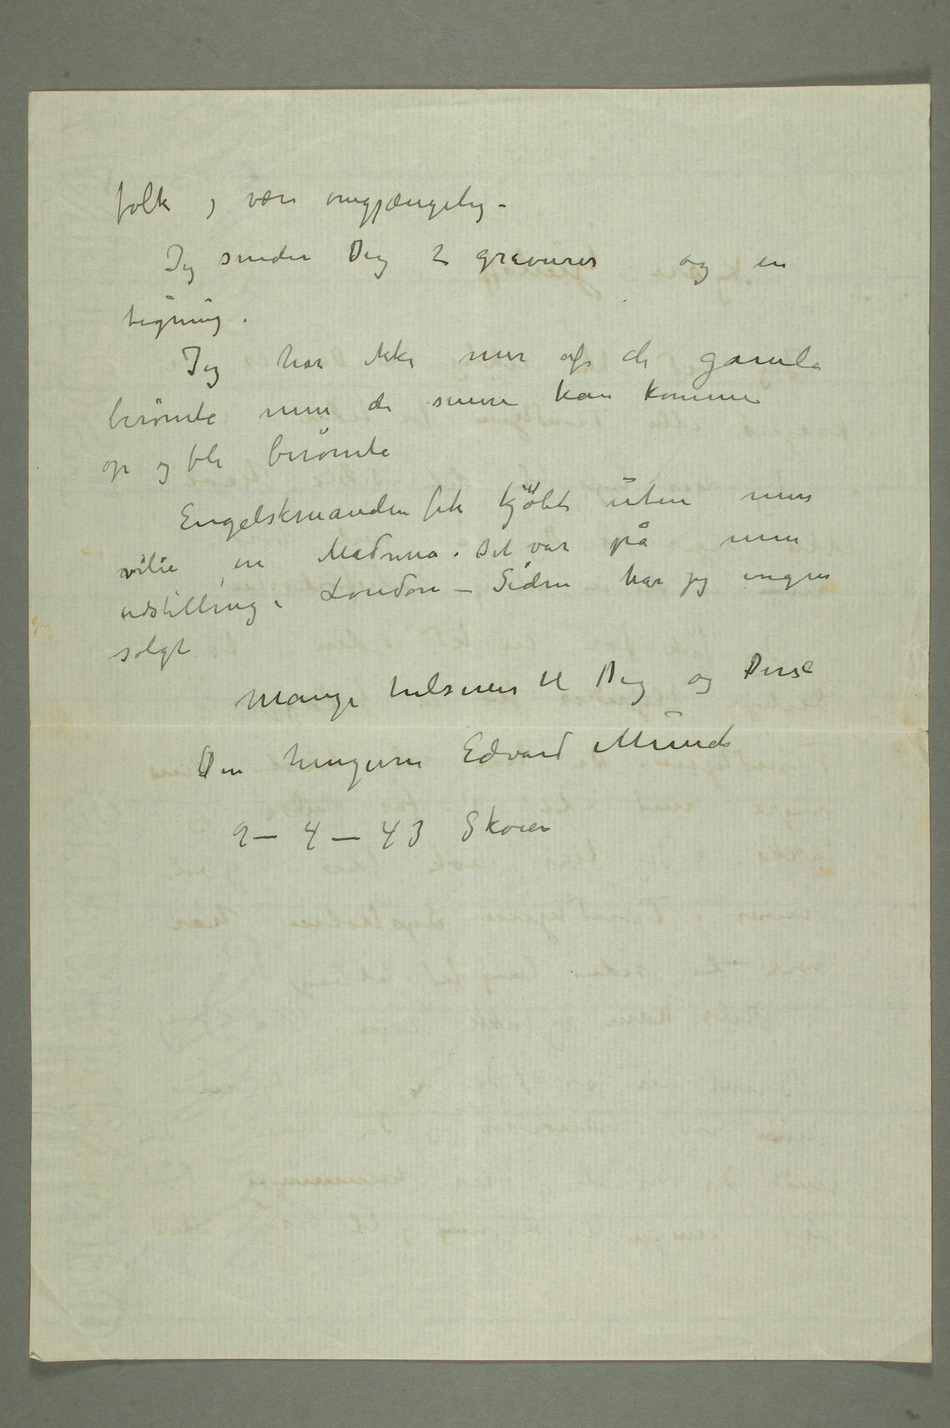 folk og være omgjængelig –
Jeg sender Dig 2 gravurer og en
tegning.
Jeg har ikke mer af de gamle
berömte men de senere kan komme
op og bli berömte
Engelskmanden fik kjöbt uten min
vilie en Madonna. Det var på min
udstilling i London – Siden har jeg ingen
solgt
Mange hilsener til Dig og Dine
Din hengivne Edvard Munch
9 – 4 – 43 Skøien